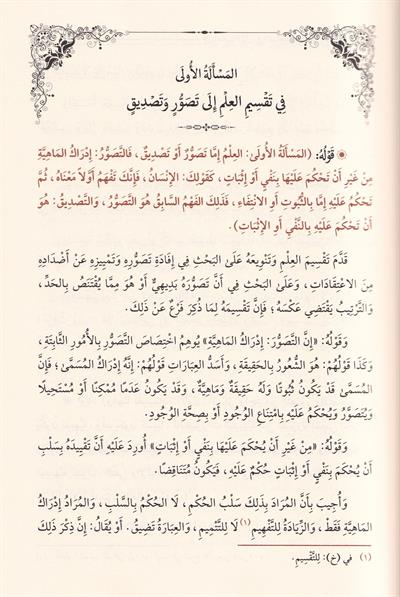 المَسْأَلَةُ الأُولَى
فِي تَقْسِيمِ العِلْمِ إِلَى تَصَوُّرٍ وَتَصْدِيقٍ
قَوْلُهُ: (المَسْأَلَةُ الأُولَى: العِلْمُ إِمَّا تَصَوُّرٌ أَوْ تَصْدِيقٌ، فَالتَّصَوُّرُ: إِدْرَاكُ المَاهِيَّةِ
مِنْ غَيْرِ أَنْ تَحْكُمَ عَلَيْهَا بِنَفْيٍ أَوْ إِثْبَاتٍ، كَقَوْلِكَ: الإِنْسَانُ، فَإِنَّكَ تَفْهَمُ أَوَّلاً مَعْنَاهُ، ثُمَّ
تَحْكُمُ عَلَيْهِ إِمَّا بِالثُّبُوتِ أَوِ الانْتِفَاءِ، فَذَلِكَ الفَهْمُ السَّابِقُ هُوَ التَّصَوُّرُ، وَالتَّصْدِيقُ: هُوَ
أَنْ تَحْكُمَ عَلَيْهِ بِالنَّفْيِ أَوِ الإِثْبَاتِ).
قَدَّمَ تَقْسِيمَ العِلْمِ وَتَنْوِيعَهُ عَلَى البَحْثِ فِي إِفَادَةِ تَصَوُّرِهِ وَتَمْيِيزِهِ عَنْ أَضْدَادِهِ
مِنَ الاعْتِقَادَاتِ، وَعَلَى البَحْثِ فِي أَنَّ تَصَوُّرَهُ بَدِيهِيٌّ أَوْ هُوَ مِمَّا يُقْتَنَصُ بِالحَدِّ،
وَالتَّرْتِيبُ يَقْتَضِي عَكْسَهُ؛ فَإِنَّ تَقْسِيمَهُ لِمَا ذُكِرَ فَرْعٌ عَنْ ذَلِكَ.
وَقَوْلُهُ: «إِنَّ التَّصَوُّرَ: إِدْرَاكُ المَاهِيَّةِ» يُوهِمُ اخْتِصَاصَ التَّصَوُّرِ بِالأُمُورِ الثَّابِتَةِ،
وَكَذَا قَوْلُهُمْ: هُوَ الشُّعُورُ بِالحَقِيقَةِ، وَأَسَدُّ العِبَارَاتِ قَوْلُهُمْ: إِنَّهُ إِدْرَاكُ المُسَمَّى؛ فَإِنَّ
المُسَمَّى قَدْ يَكُونُ ثُبُوتًا وَلَهُ حَقِيقَةٌ وَمَاهِيَّةٌ، وَقَدْ يَكُونُ عَدَمًا مُمْكِنًا أَوْ مُسْتَحِيلًا
وَيُتَصَوَّرُ وَيُحْكَمُ عَلَيْهِ بِامْتِنَاعِ الوُجُودِ أَوْ بِصِحَّةِ الوُجُودِ.
وَقَوْلُهُ: «مِنْ غَيْرِ أَنْ يُحْكَمَ عَلَيْهَا بِنَفْيٍ أَوْ إِثْبَاتٍ» أُورِدَ عَلَيْهِ أَنَّ تَقْيِيدَهُ بِسَلْبِ
أَنْ يُحْكَمَ بِنَفْيٍ أَوْ إِثْبَاتٍ حُكْمٌ عَلَيْهِ، فَيَكُونُ مُتَنَاقِضًا.
وَأُجِيبَ بِأَنَّ المُرَادَ بِذَلِكَ سَلْبُ الحُكْمِ، لَا الحُكْمُ بِالسَّلْبِ، وَالمُرَادُ إِدْرَاكُ
المَاهِيَّةِ فَقَطْ، وَالزِّيَادَةُ لِلتَّفْهِيمِ (١) لَا لِلتَّتْمِيمِ، وَالعِبَارَةُ تَضِيقُ. أَوْ يُقَالُ: إِنَّ ذِكْرَ ذَلِكَ
(١) فِي (خ): لِلتَّقْسِيمِ.